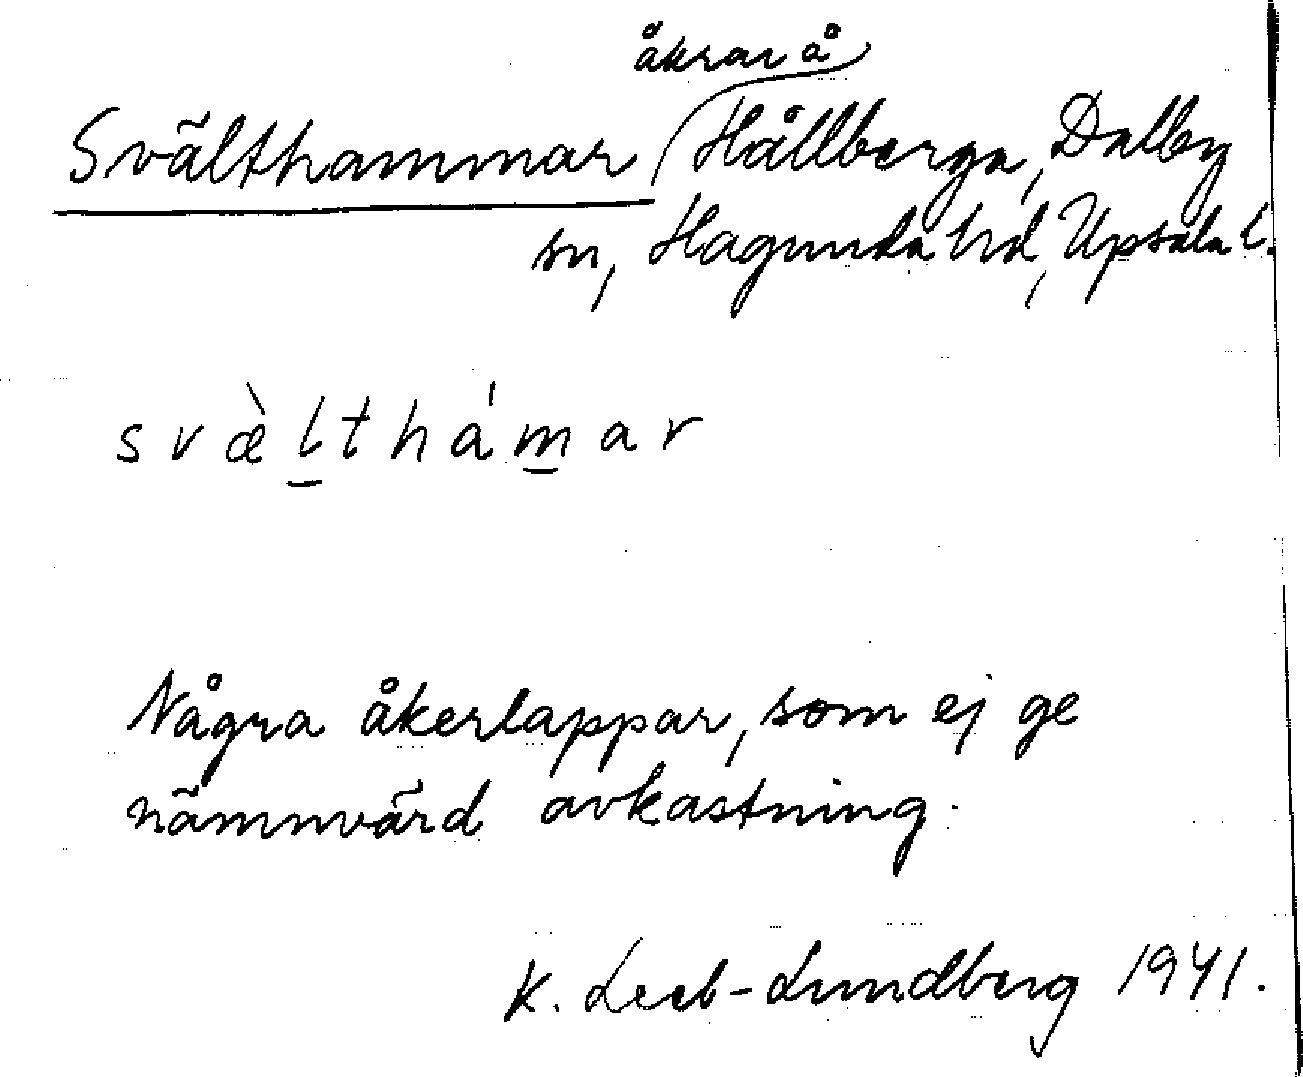 åkrar å
Svälthammar Hållberga, Dalby
sn, Hagunda hd, Upsala l.
s v æ̀ l̲ t h á m̲ a r
Några åkerlappar, som ej ge
nämnvärd avkastning.
K. Leeb-Lundberg 1941.